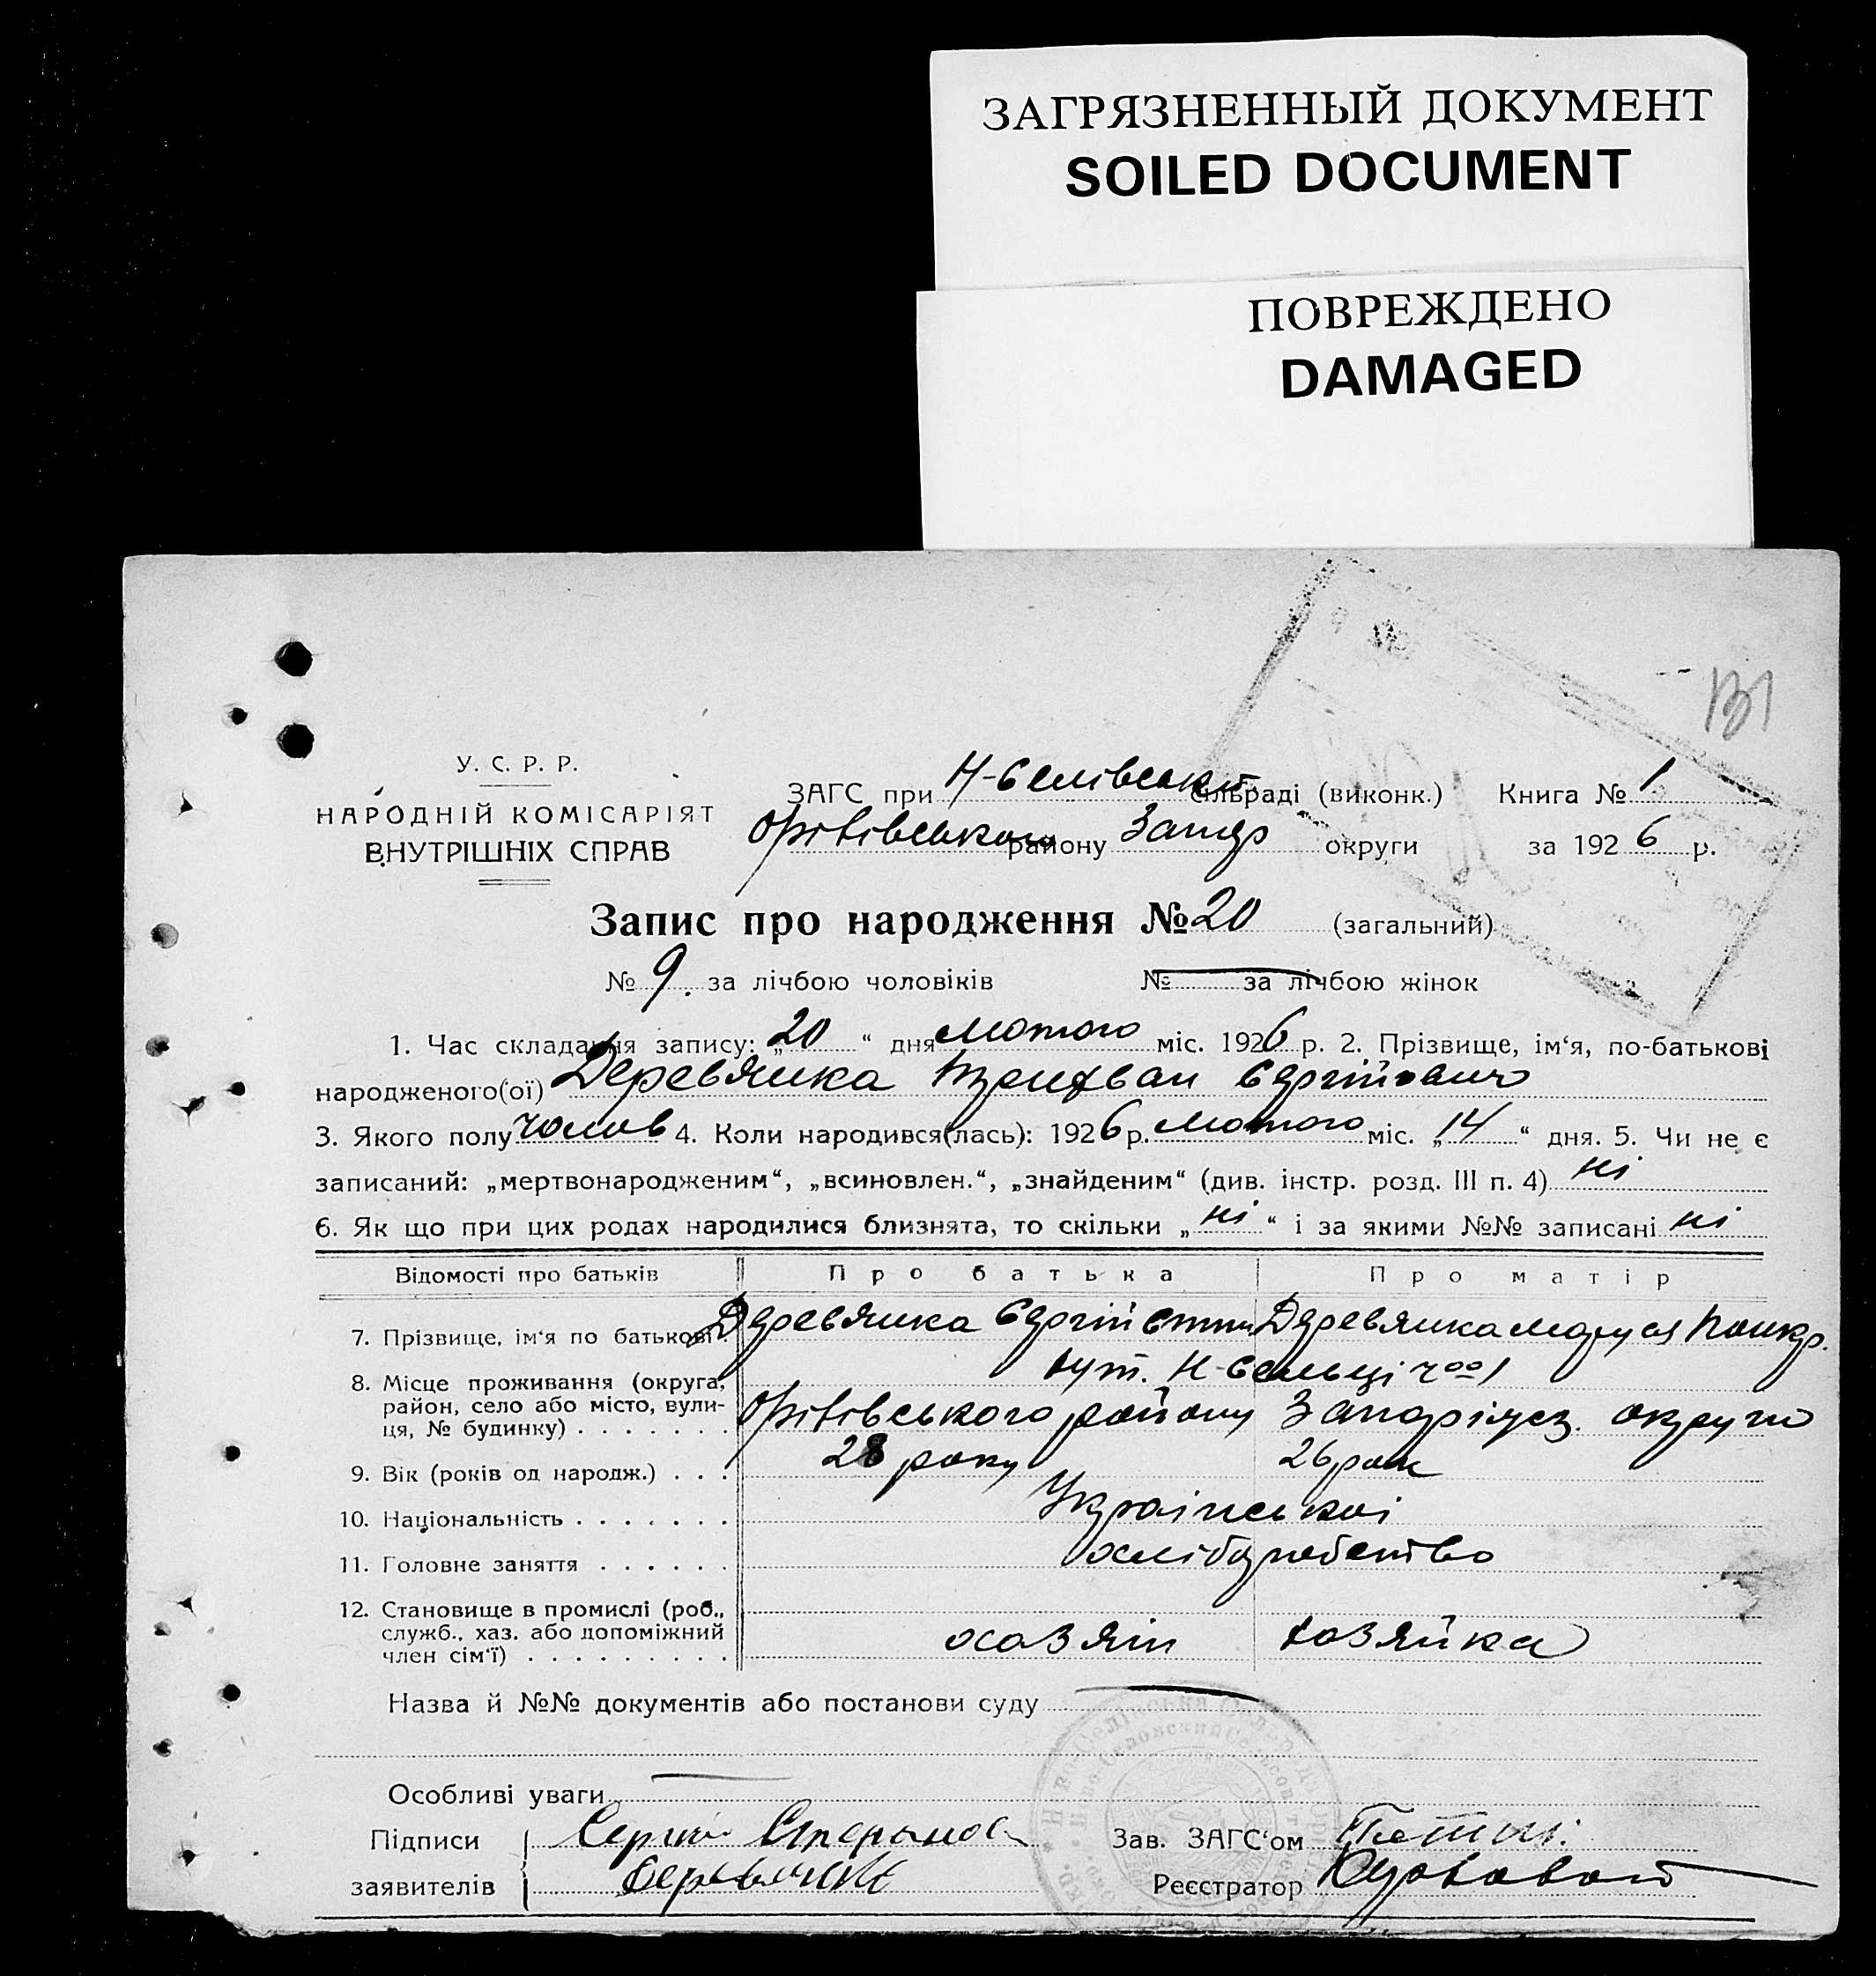 ЗАГРЯЗНЕННЫЙ ДОКУМЕНТ
SOILED DOCUMENT
ПОВРЕЖДЕНО
DAMAGED
131
У. С. Р. Р.
НАРОДНІЙ КОМІСАРІЯТ
ВНУТРІШНІХ СПРАВ
ЗАГС при Н-Селівській сільраді (виконк.) Книга № 1
Оріхівського району Запор округи за 1926 р.
Запис про народження № 20 (загальний)
№ 9. за лічбою чоловіків № за лічбою жінок
1. Час складання запису: „20“ дня лютого міс. 1926 р. 2. Прізвище, ім‘я, по-батькові
народженого(ої) Деревянка Сергійович
3. Якого полу чолов 4. Коли народився(лась): 1926 р. лютого міс. „14“ дня. 5. Чи не є
записаний: „мертвонародженим“, „всиновлен.“, „знайденим“ (див. інстр. розд. III п. 4) ні
6. Як що при цих родах народилися близнята, то скільки „ні“ і за якими №№ записані ні
Відомості про батьків Про батька Про матір
7. Прізвище, ім‘я по батькові. Деревянка Сергій Деревянка Маруся
8. Місце проживання (округа, район, село або місто, вули-ця, № будинку) . . . . . . .
хут. Н-Сельці
Оріхівського району Запоріжж. округи
9. Вік (років од народж.) . . . 28 року 26 рок
10. Національність . . . . . . . Української
11. Головне заняття . . . . . . хліборобство
12. Становище в промислі (роб., служб., хаз. або допоміжний член сім‘ї) . . . . . . . . . хазяїн хазяйка
Назва й №№ документів або постанови суду
Особливі уваги
Підписи Сергий Зав. ЗАГС‘ом
заявителів Деревянка Реєстратор